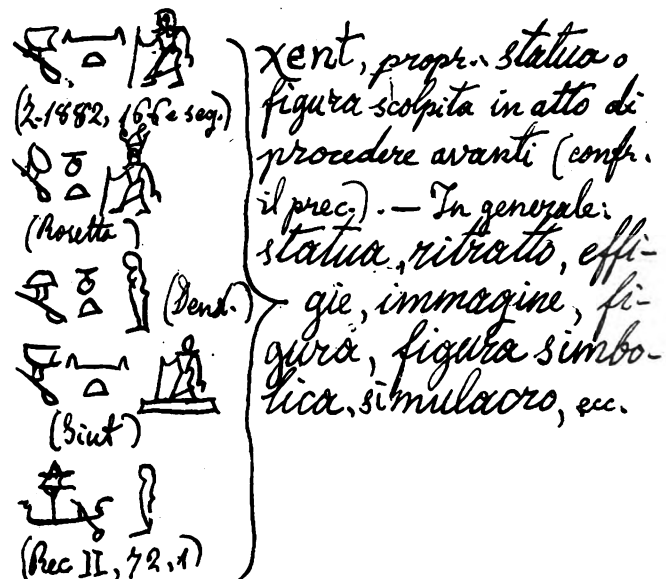 (Z. 1882, 166 e seg.)
(Rosetta)
(Dend.)
(Siut)
(Rec II, 72, 1)
χent, propr. statua o
figura scolpita in atto di
procedere avanti (confr.
il prec.). — In generale:
statua, ritratto, effi-
gie, immagine, fi-
gura, figura simbo-
lica, simulacro, ecc.